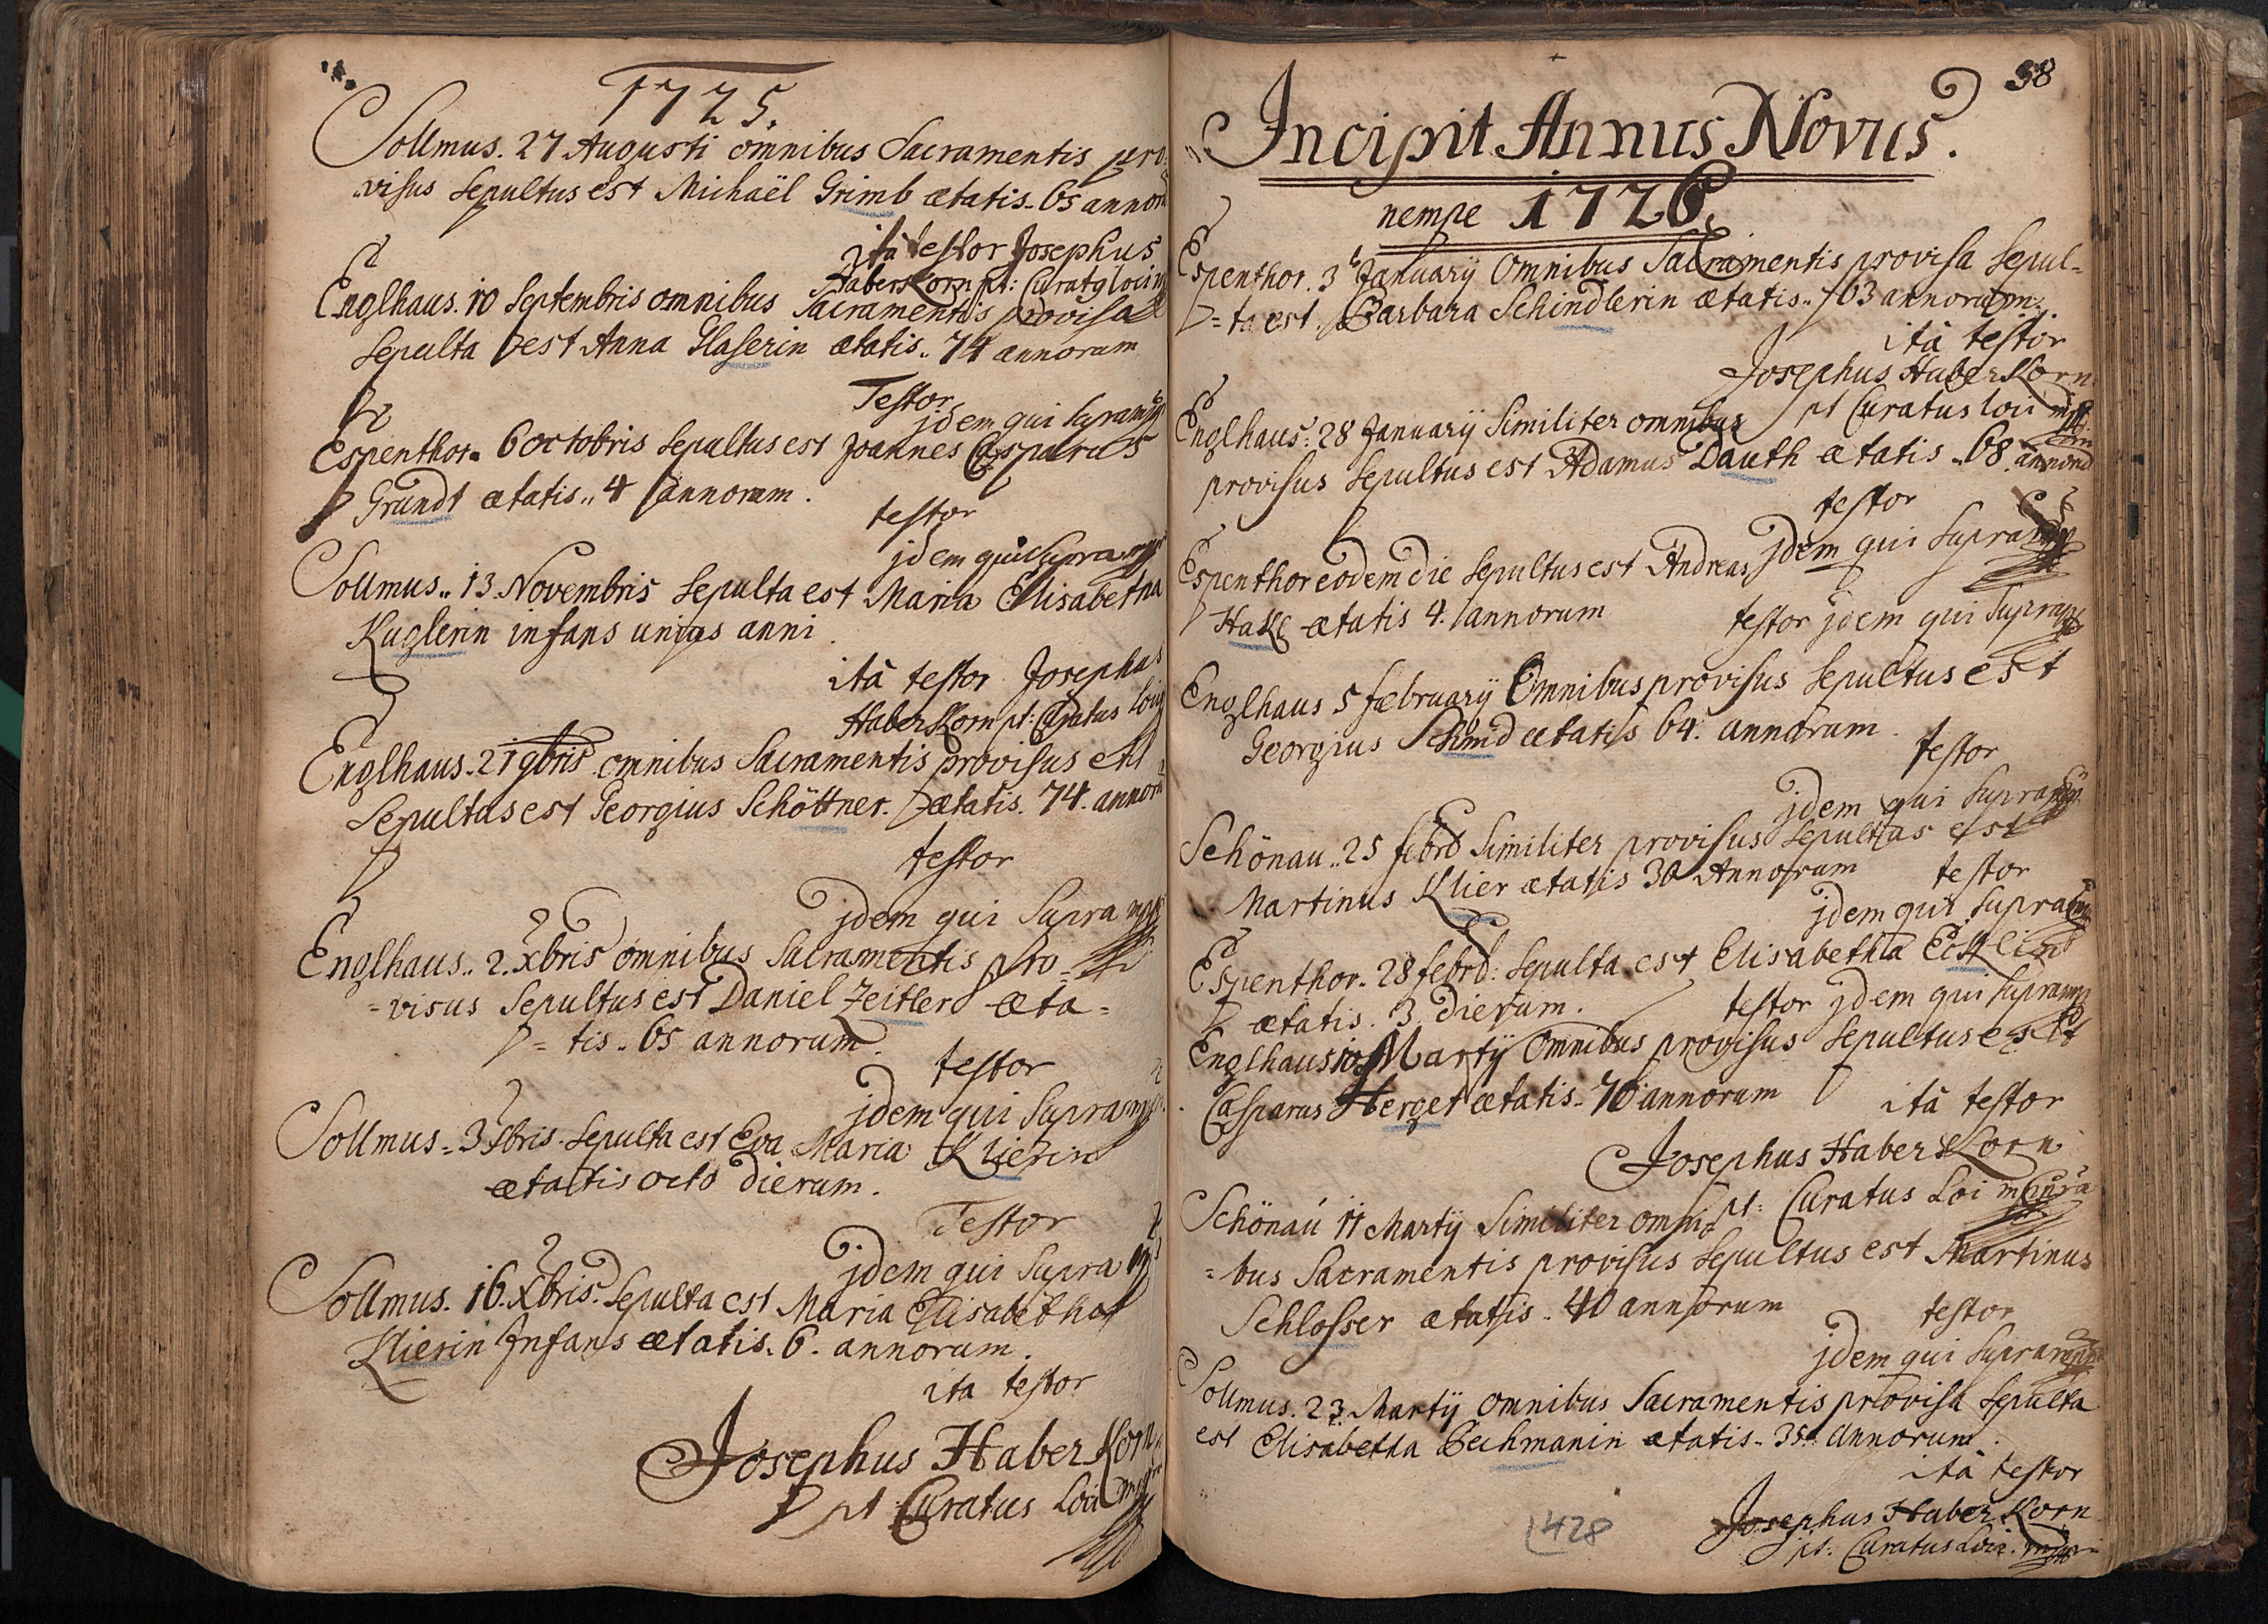 1725.
Sollmus. 27 Augusti omnibus Sacramentis pro-
visus Sepultus est Michaël Grimb ætatis. 65 annoru
ità testor Josephus
Haberkorn pt: Curatg loci
Englhaus. 10 Septembris omnibus Sacramentis provisa
Sepulta est Anna Glaserin ætatis.. 74 annorum
Testor
jdem qui supra
Espenthor. 6 octobris Sepultus est Joannes Casparus
Grundt ætatis.. 4 annorum.
testor
jdem qui Supra
Sollmus.. 13. Novembris Sepulta est Maria Elisabetha
Kuglerin infans unius anni.
ità testor Josephus
Haberkorn pt: Curatus loci
Englhaus. 21 9bris omnibus Sacramentis provisus
Sepultus est Georgius Schöttner. ætatis. 74. annoru
testor
jdem qui Supra mpp
Englhaus.. 2. Xbris omnibus Sacramentis pro=
=visus Sepultus est Daniel Zeitler æta=
=tis. 65 annorum.
testor
jdem qui Supra mpp
Sollmus= 3 Xbris. Sepulta est Eva Maria Klierin
ætatis octo dierum.
Testor
jdem qui Supra
Sollmus. 16. Xbris. Sepulta est Maria Elisabetha
Klierin Jnfans ætatis. 6. annorum.
ita testor
Josephus Haberkorn
pt Curatus Loci
38
Incipit Annus Novus.
nempe 1726.
Espenthor. 3 January Omnibus Sacramentis provisa Sepul=
=ta est. Barbara Schindlerin ætatis.. 63 annorum.
ità testor
Josephus Haberkorn
pt Curatus loci
Englhaus: 28 January Similiter omnibus
provisus Sepultus est Adamus Dauth ætatis.. 68. annoru
testor
jdem qui Supra
Espenthor eodem die Sepultus est Andreas
Hake ætatis 4. annorum
testor jdem qui Supra
Englhaus 5 february Omnibus provisus Sepultus est
Georgius Schmid ætatis 64. annorum.
testor
jdem qui Supra
Schönau.. 25 febr Similiter provisus Sepultus est
Martinus Klier ætatis 30 Annorum
testor
jdem qui Supra
Espenthor. 28 febr: Sepulta est Elisabetha
ætatis. 3. dierum.
testor jdem qui Supra
Englhaus 10 Martij Omnibus provisus Sepultus est
Casparus Herget ætatis. 70 annorum
ità testor
Josephus Haberkorn
pt: Curatus Loci
Schönau 11 Martij Similiter omni
=bus Sacramentis provisus Sepultus est Martinus
Schlosser ætatis. 40 annorum
testor
jdem qui Supra mpp
Sollmus. 23. Martij Omnibus Sacramentis provisa Sepulta
est Elisabetha Bechmanin ætatis. 35. Annorum.
ità testor
Josephus Haberkorn
pt: Curatus Loci.
1428